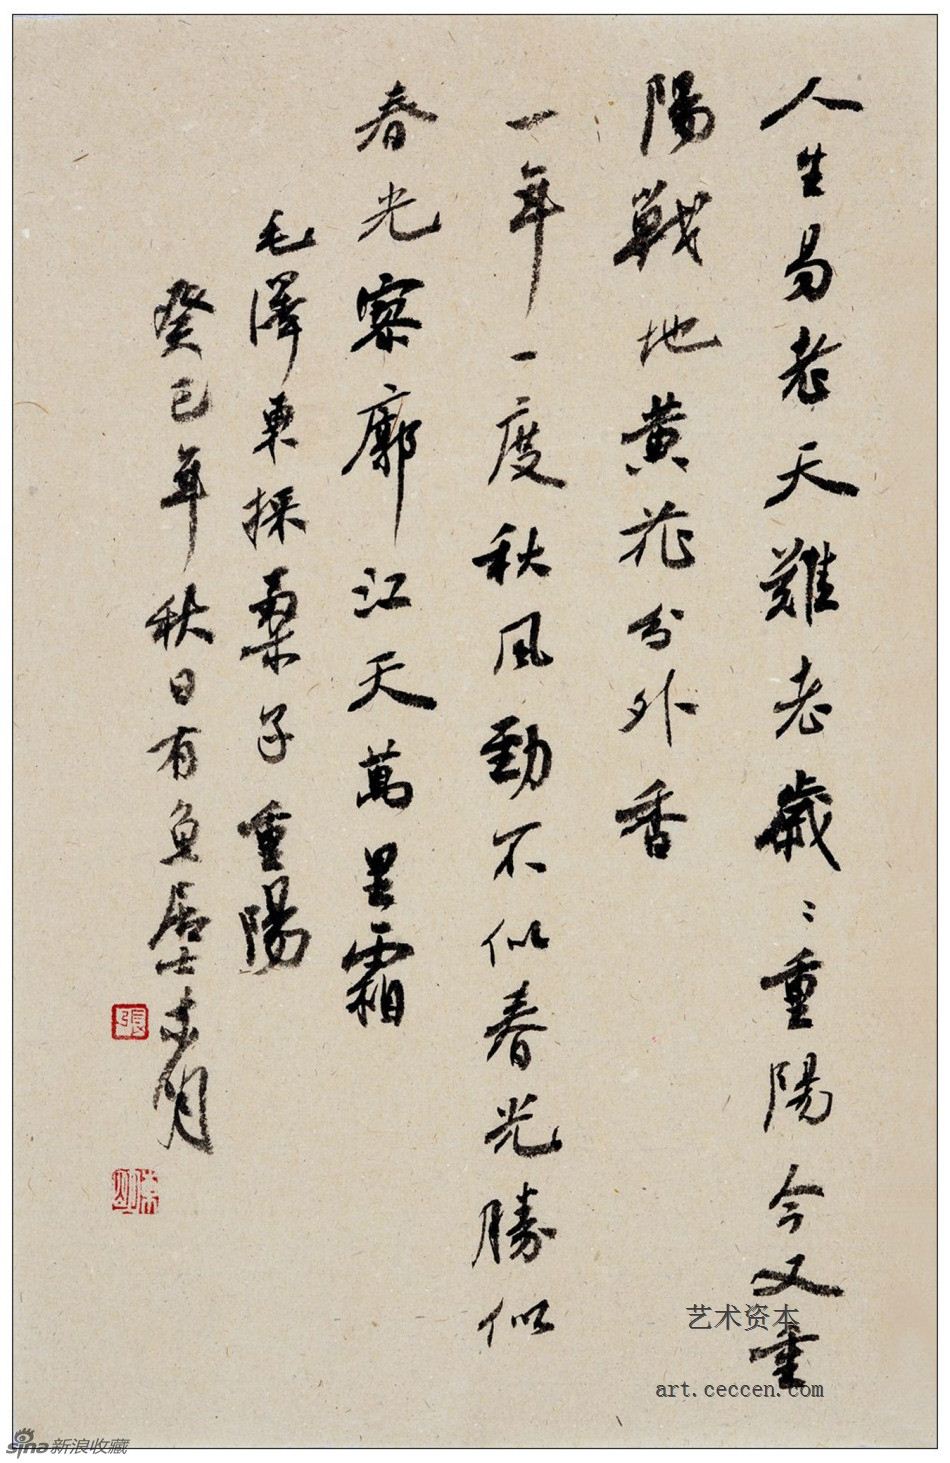 人生易老天難老歲〻重陽今又重
陽戰地黄花分外香
一年一度秋風勁不似春光勝似
春光寥廓江天萬里霜
毛澤東採桑子重陽
癸巳年秋日有魚居士未明
張
未明
艺术资本
art.ceccen.com
sina新浪收藏